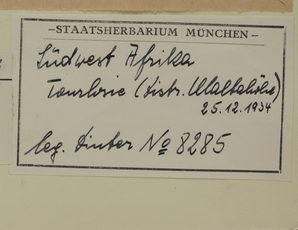 –STAATSHERBARIUM MÜNCHEN–
Südwest Afrika
(Distr. Maltahöhe)
25.12.1934
leg. Dinter No 8285